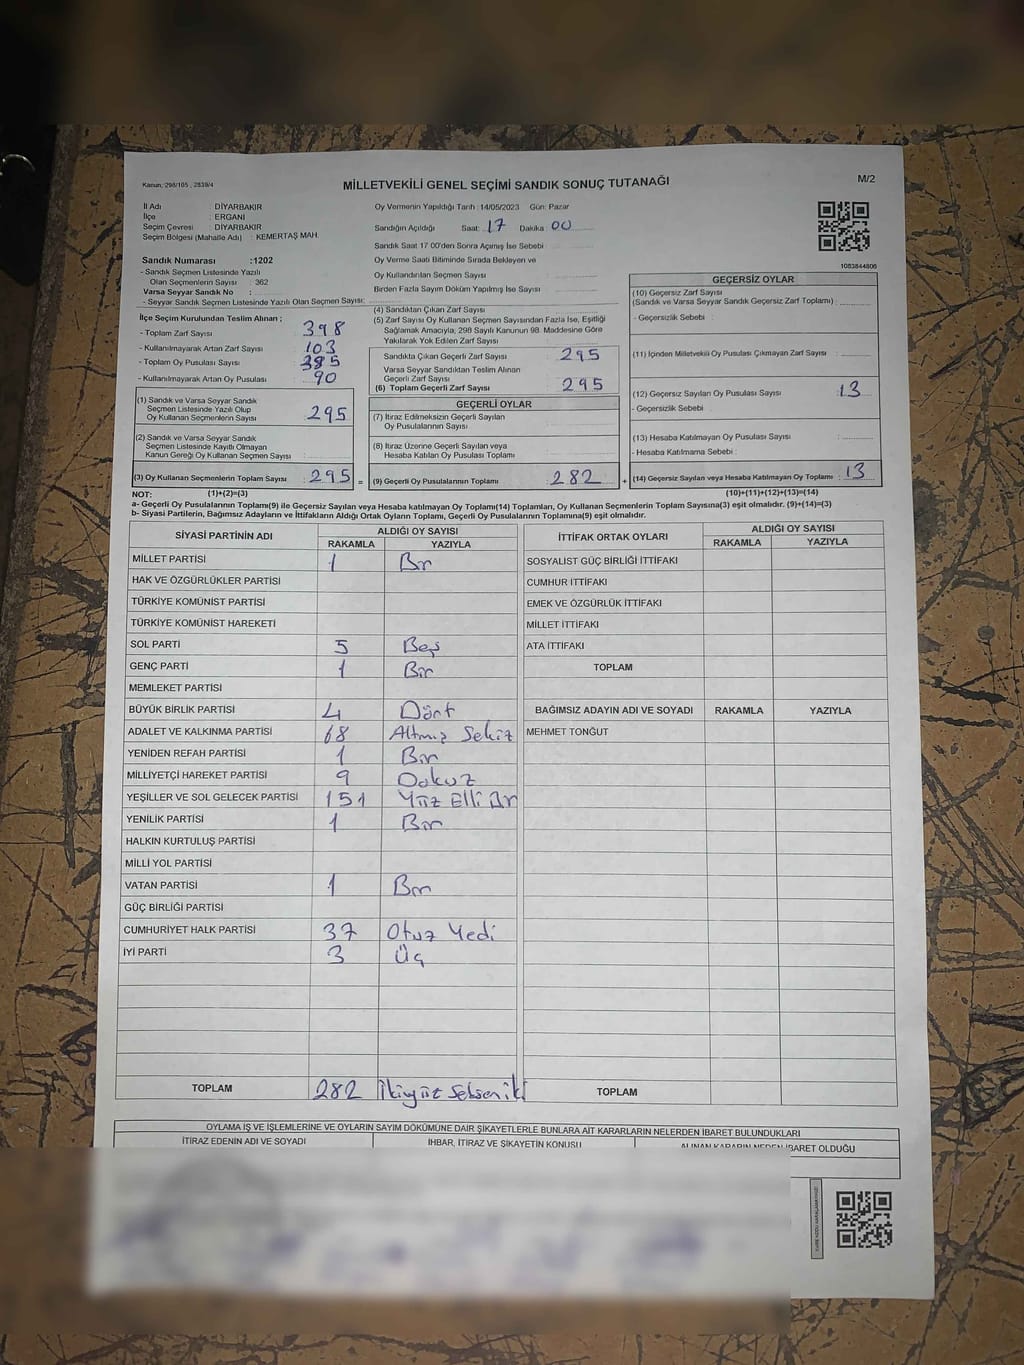 Kanun, 298/105 , 2839/4
MİLLETVEKİLİ GENEL SEÇİMİ SANDIK SONUÇ TUTANAĞI
M/2
İl Adı : DİYARBAKIR
İlçe : ERGANİ
Seçim Çevresi : DİYARBAKIR
Seçim Bölgesi (Mahalle Adı) : KEMERTAŞ MAH.
Sandık Numarası :1202
- Sandık Seçmen Listesinde Yazılı
Olan Seçmenlerin Sayısı : 362
Varsa Seyyar Sandık No :
- Seyyar Sandık Seçmen Listesinde Yazılı Olan Seçmen Sayısı:
Oy Vermenin Yapıldığı Tarih :14/05/2023 Gün: Pazar
Sandığın Açıldığı Saat: 17 Dakika 00
Sandık Saat 17 00'den Sonra Açımış İse Sebebi :
Oy Verme Saati Bitiminde Sırada Bekleyen ve
Oy Kullandırılan Seçmen Sayısı
Birden Fazla Sayım Döküm Yapılmış İse Sayısı
1083844806
İlçe Seçim Kurulundan Teslim Alınan ;
- Toplam Zarf Sayısı : 398
- Kullanılmayarak Artan Zarf Sayısı : 103
- Toplam Oy Pusulası Sayısı : 385
- Kullanılmayarak Artan Oy Pusulası : 90
(1) Sandık ve Varsa Seyyar Sandık
Seçmen Listesinde Yazılı Olup
Oy Kullanan Seçmenlerin Sayısı : 295
(2) Sandık ve Varsa Seyyar Sandık
Seçmen Listesinde Kayıtlı Olmayan
Kanun Gereği Oy Kullanan Seçmen Sayısı :
(3) Oy Kullanan Seçmenlerin Toplam Sayısı : 295 =
(4) Sandıktan Çıkan Zarf Sayısı
(5) Zarf Sayısı Oy Kullanan Seçmen Sayısından Fazla İse, Eşitliği
Sağlamak Amacıyla, 298 Sayılı Kanunun 98. Maddesine Göre
Yakılarak Yok Edilen Zarf Sayısı
Sandıkta Çıkan Geçerli Zarf Sayısı : 295
Varsa Seyyar Sandıktan Teslim Alınan
Geçerli Zarf Sayısı
(6) Toplam Geçerli Zarf Sayısı : 295
GEÇERLİ OYLAR
(7) İtiraz Edilmeksizin Geçerli Sayılan
Oy Pusulalarının Sayısı
(8) İtiraz Üzerine Geçerli Sayılan veya
Hesaba Katılan Oy Pusulası Toplamı
(9) Geçerli Oy Pusulalarının Toplamı : 282 +
GEÇERSİZ OYLAR
(10) Geçersiz Zarf Sayısı
(Sandık ve Varsa Seyyar Sandık Geçersiz Zarf Toplamı) :
- Geçersizlik Sebebi :
(11) İçinden Milletvekili Oy Pusulası Çıkmayan Zarf Sayısı :
(12) Geçersiz Sayılan Oy Pusulası Sayısı : 13
- Geçersizlik Sebebi
(13) Hesaba Katılmayan Oy Pusulası Sayısı :
- Hesaba Katılmama Sebebi :
(14) Geçersiz Sayılan veya Hesaba Katılmayan Oy Pusulası Toplamı : 13
NOT: (1)+(2)=(3) (10)+(11)+(12)+(13)=(14)
a- Geçerli Oy Pusulalarının Toplamı(9) ile Geçersiz Sayılan veya Hesaba katılmayan Oy Toplamı(14) Toplamları, Oy Kullanan Seçmenlerin Toplam Sayısına(3) eşit olmalıdır. (9)+(14)=(3)
b- Siyasi Partilerin, Bağımsız Adayların ve İttifakların Aldığı Ortak Oyların Toplamı, Geçerli Oy Pusulalarının Toplamına(9) eşit olmalıdır.
SİYASİ PARTİNİN ADI ALDIĞI OY SAYISI
RAKAMLA YAZIYLA
MİLLET PARTİSİ 1 Bir
HAK VE ÖZGÜRLÜKLER PARTİSİ
TÜRKİYE KOMÜNİST PARTİSİ
TÜRKİYE KOMÜNİST HAREKETİ
SOL PARTİ 5 Beş
GENÇ PARTİ 1 Bir
MEMLEKET PARTİSİ
BÜYÜK BİRLİK PARTİSİ 4 Dört
ADALET VE KALKINMA PARTİSİ 68 Altmış Sekiz
YENİDEN REFAH PARTİSİ 1 Bir
MİLLİYETÇİ HAREKET PARTİSİ 9 Dokuz
YEŞİLLER VE SOL GELECEK PARTİSİ 151 Yüz Elli Bir
YENİLİK PARTİSİ 1 Bir
HALKIN KURTULUŞ PARTİSİ
MİLLİ YOL PARTİSİ
VATAN PARTİSİ 1 Bir
GÜÇ BİRLİĞİ PARTİSİ
CUMHURİYET HALK PARTİSİ 37 Otuz Yedi
İYİ PARTİ 3 Üç
TOPLAM 282 İkiyüz Seksen iki
İTTİFAK ORTAK OYLARI ALDIĞI OY SAYISI
RAKAMLA YAZIYLA
SOSYALIST GÜÇ BİRLİĞİ İTTİFAKI
CUMHUR İTTİFAKI
EMEK VE ÖZGÜRLÜK İTTİFAKI
MİLLET İTTİFAKI
ATA İTTİFAKI
TOPLAM
BAĞIMSIZ ADAYIN ADI VE SOYADI RAKAMLA YAZIYLA
MEHMET TONĞUT
TOPLAM
OYLAMA İŞ VE İŞLEMLERİNE VE OYLARIN SAYIM DÖKÜMÜNE DAİR ŞİKAYETLERLE BUNLARA AİT KARARLARIN NELERDEN İBARET BULUNDUKLARI
İTİRAZ EDENİN ADI VE SOYADI İHBAR, İTİRAZ VE ŞİKAYETİN KONUSU ALINAN KARARIN NEDEN İBARET OLDUĞU